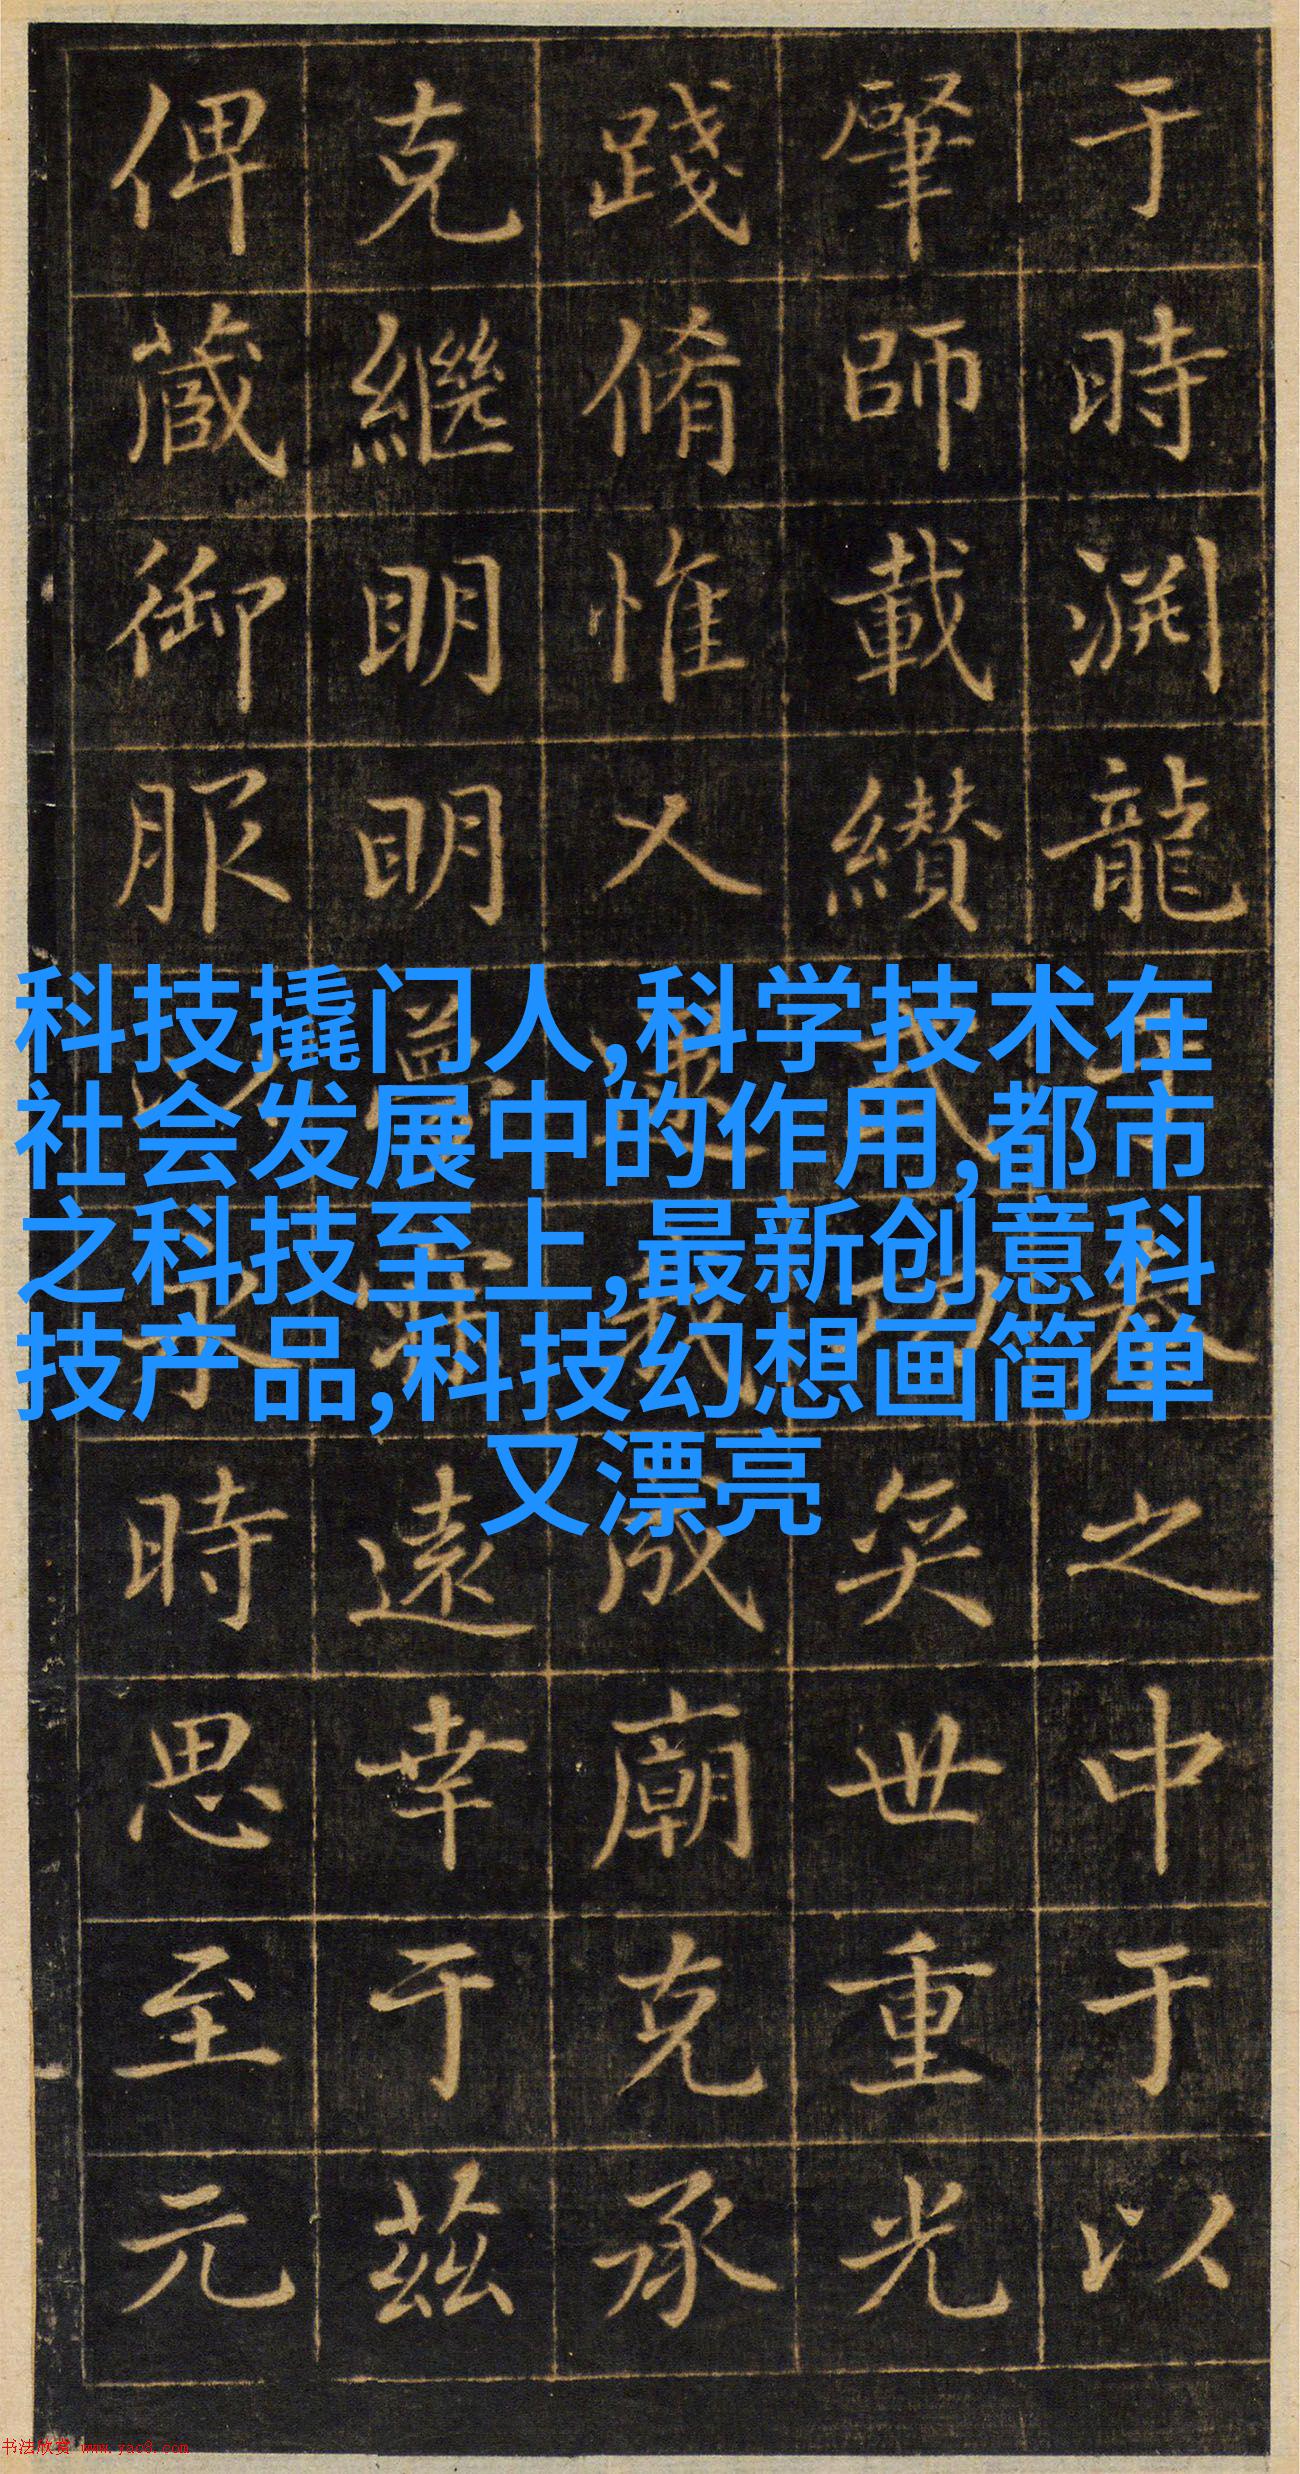 于時渊龍之中于以
肇師載纘武功奕世重光
踐脩惟乂逮我成廟克承
克繼明明遠幸于茲
俾蕆御服時思至元
科技撬门人,科学技术在
社会发展中的作用,都市
之科技至上,最新创意科
技产品,科技幻想画简单
又漂亮
书法欣赏 www.yac8.com